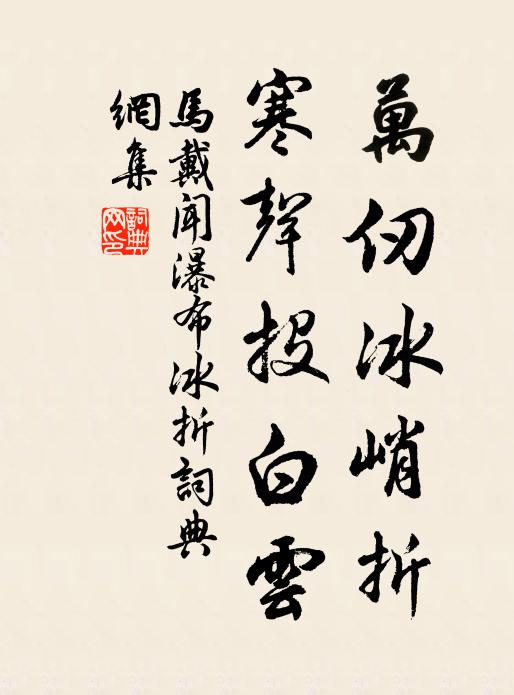 萬仞冰峭折
寒聲投白雲
馬戴聞瀑布冰折詞典
網集
詞典
网印